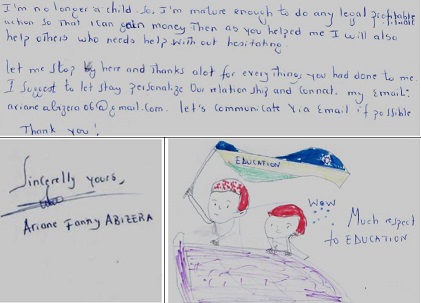 I'm no longer a child. So, I'm mature enough to do any legal profitable
action so that I can gain money. Then as you helped me I will also
help others who needs help with out hesitating.
let me stop by here and thanks alot for every things you had done to me.
I suggest to let stay personalize Our relation ship and connat. my email:
ariane abizera06@gmail.com. let's communicate via Email if possible
Thank you!
Sincerelly yours,
Ariane Fanny ABIZERA
EDUCATION
WOW
Much respect
to EDUCATION